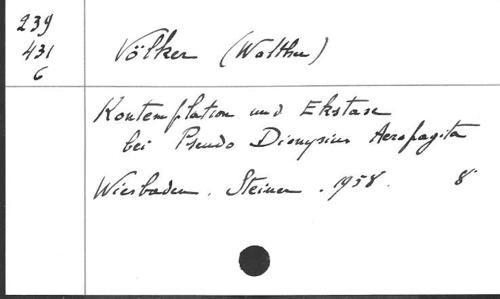 239
431
6
Völker (Walther)
Kontemplation und Ekstase
bei Pseudo Dionysius Aeropagita
Wiesbaden. Steiner. 1958. 8°